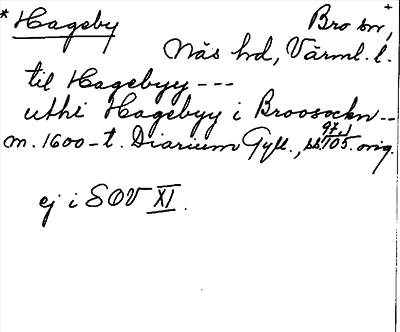 * Hageby Bro sn, +
Näs hd, Värml. l.
til Hagebyy ---
uthi Hagebyy i Broosockn --
m. 1600-t. Diarium Gyll., ss. 97, 105. orig.
ej i SOV XI.